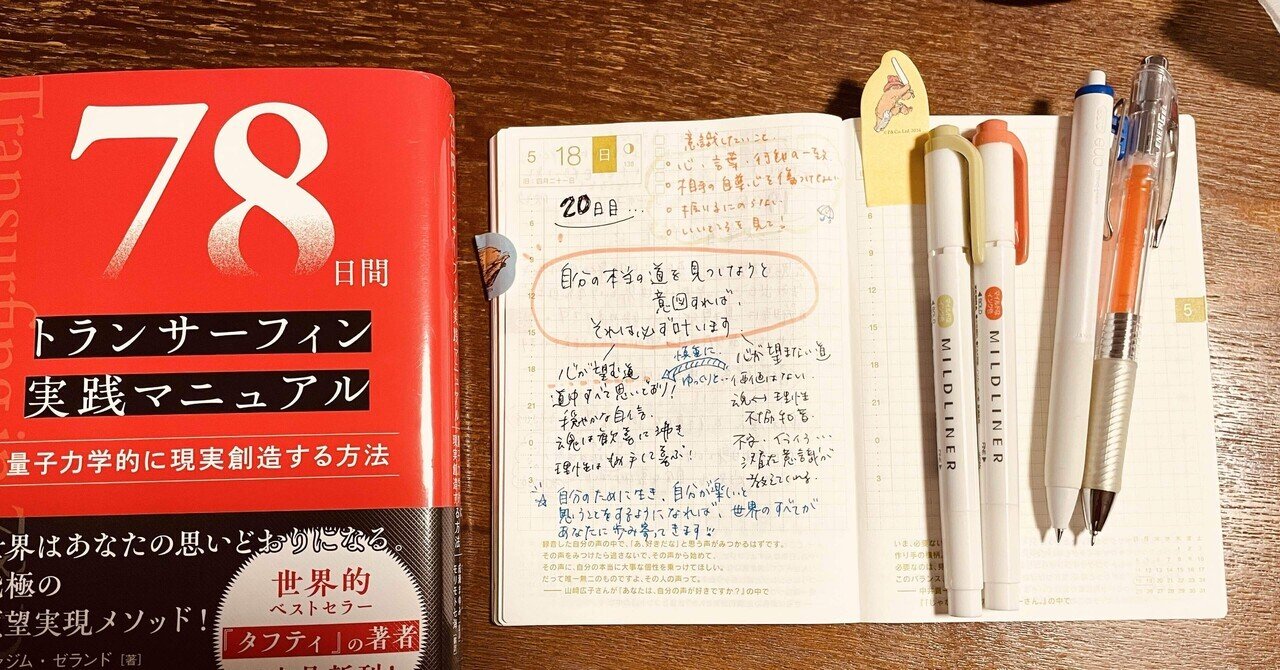 Transurfing
78
日間
トランサーフィン
実践マニュアル
量子力学的に現実創造する方法
世界はあなたの思いどおりになる。
究極の
願望実現メソッド!
世界的
ベストセラー
『タフティ』の著者
ジム・ゼランド [著]
5 18 日
138
旧:四月二十一日
意識したいこと。
○心・言葉・行動の一致
○相手の自尊心を傷つけない
○いいところを見て!
20日目...
自分の本当の道を見つけようと
意図すれば、
それは必ず叶います。
心が望む道
道中すべて思いどおり!
穏やかな自信。
魂は歓喜に沸き
理性は切手して喜ぶ!
慎重に
ゆっくりと…
心が望まない道
価値はない
魂↔理性
不協和音
不安・イライラ…
潜在意識が
教えてくれる
☆自分のために生き、自分が楽しいと
思うことをするようになれば、世界のすべてが
あなたに歩み寄ってきます!!
録音した自分の声の中で、「あ、好きだな」と思う声がみつかるはずです。
その声をみつけたら逃さないで、その声から始めて、
その声に、自分の本当に大事な個性を乗つけてほしい。
だって唯一無二のものですよ、その人の声って。
──山﨑広子さんが『あなたは、自分の声が好きですか?』の中で
MILDLINER
MILDLINER
5